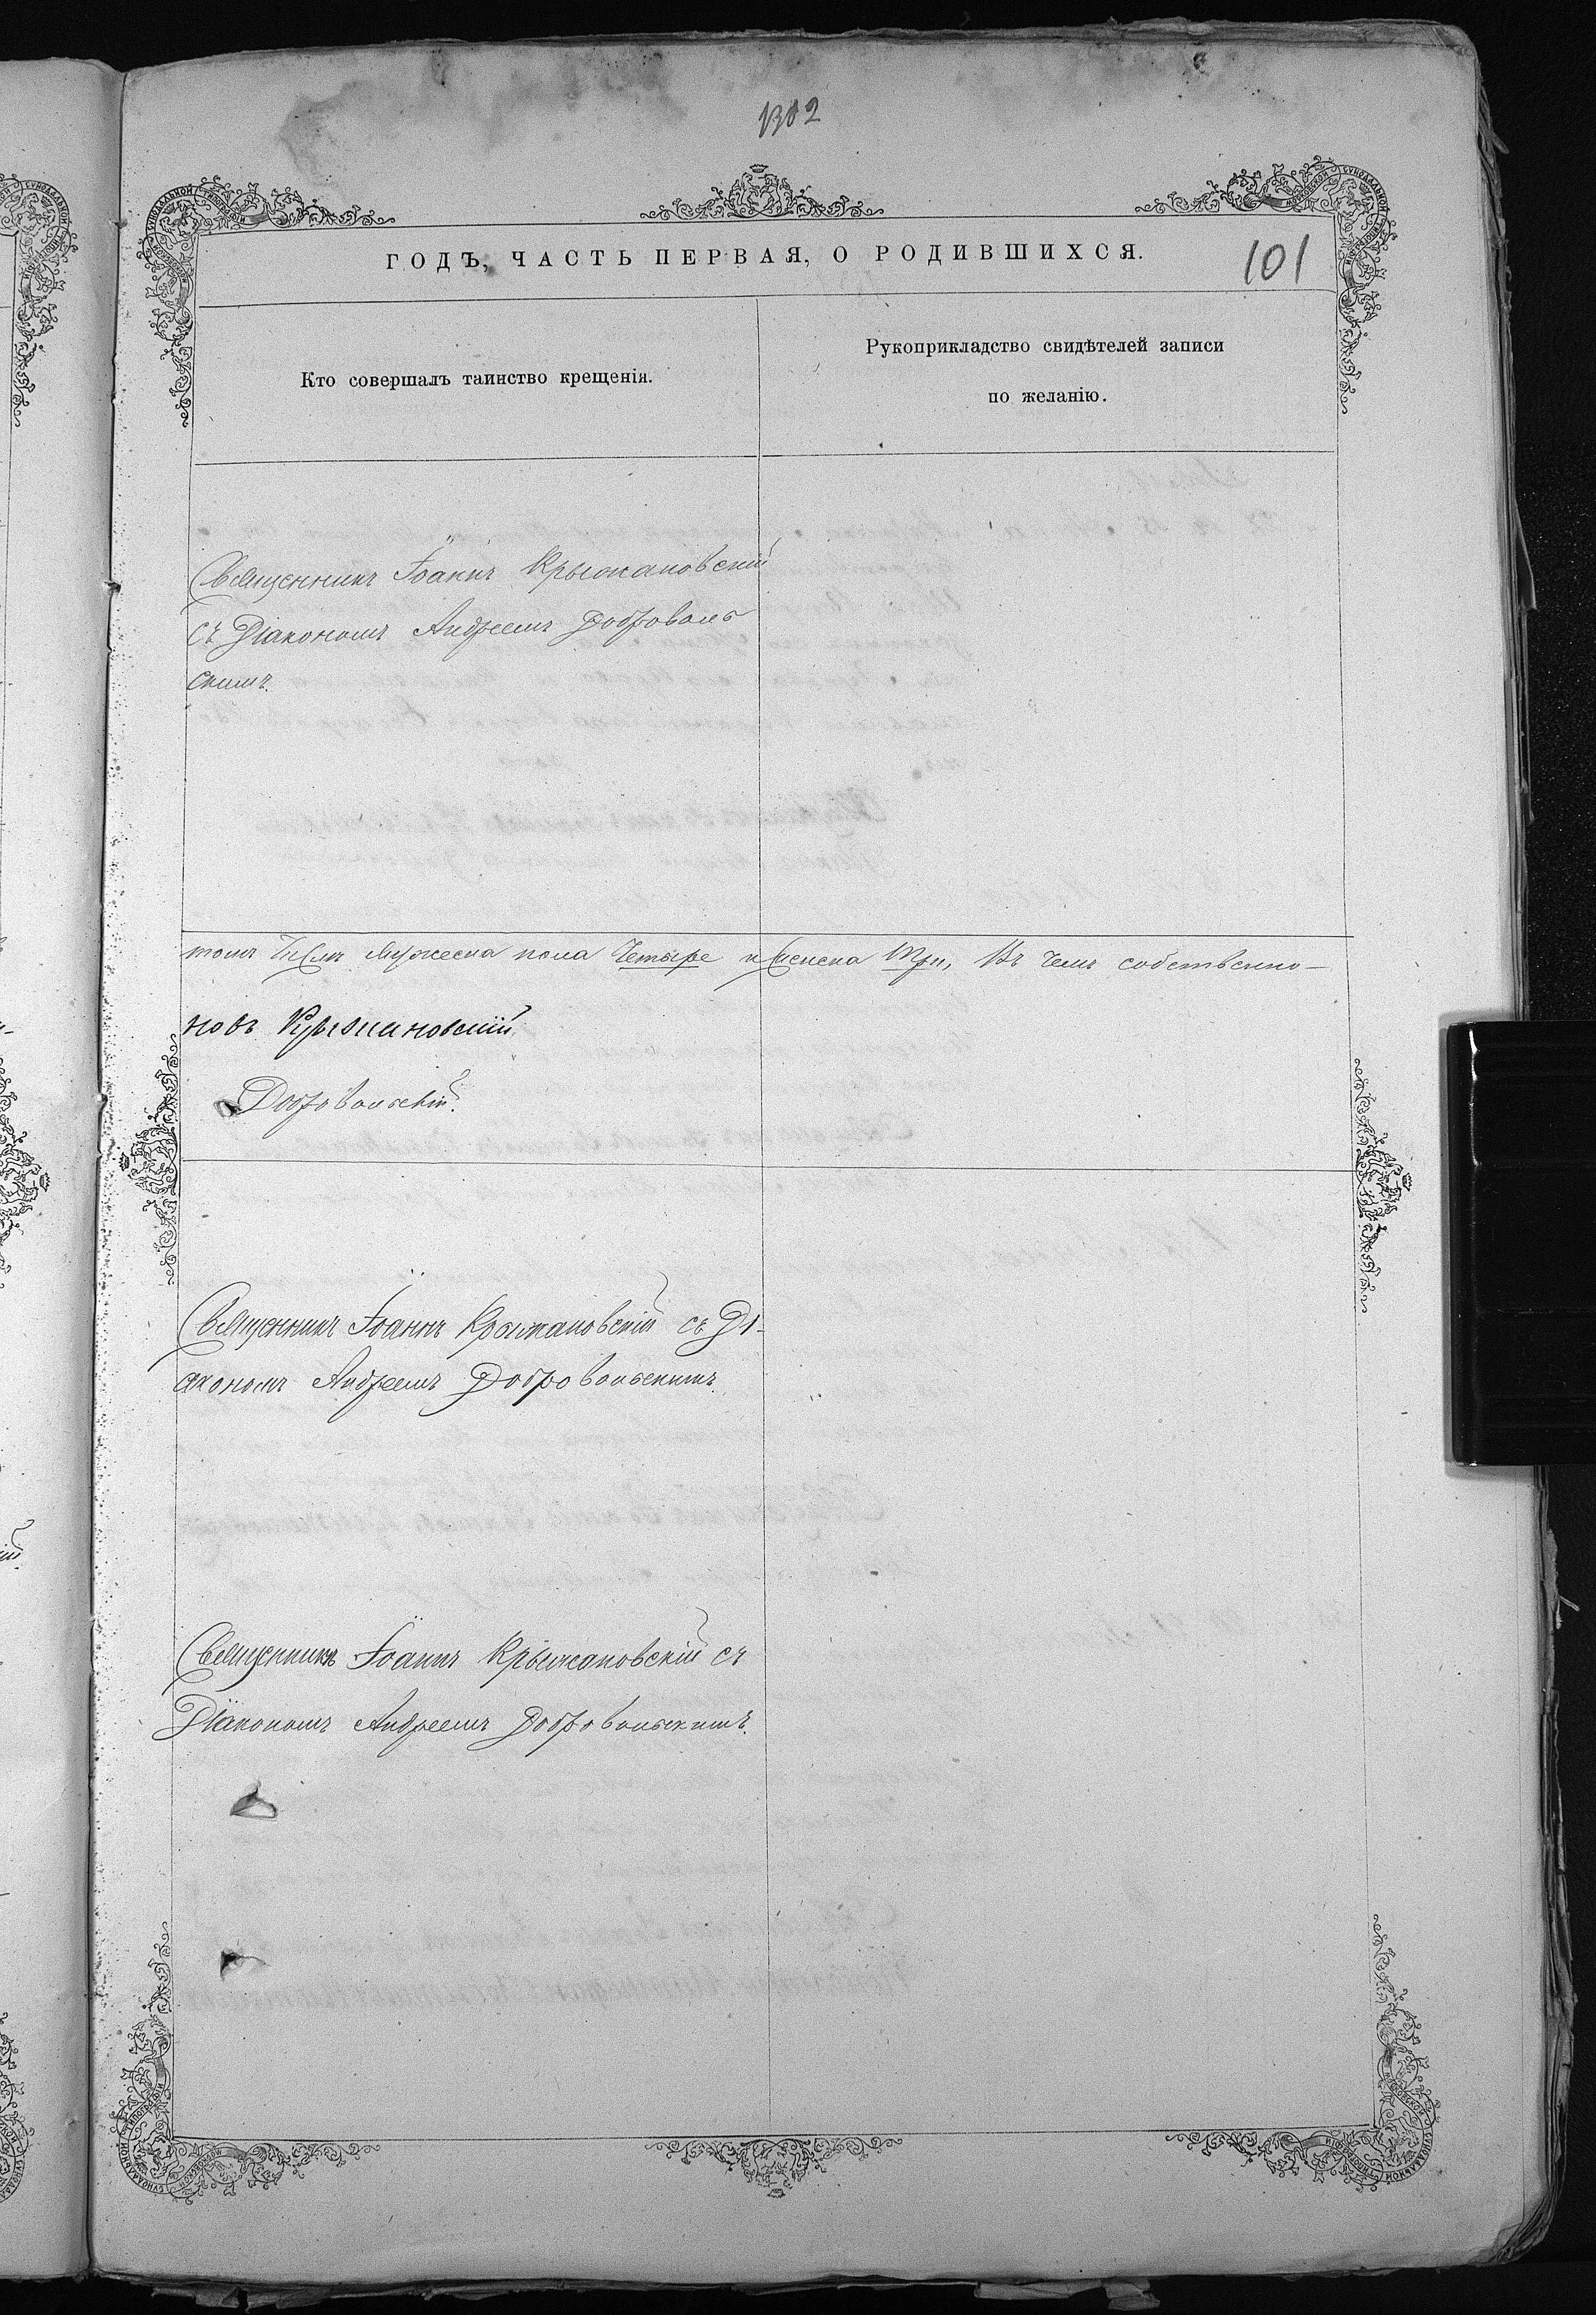 1302
ГОДЪ, ЧАСТЬ ПЕРВАЯ, О РОДИВШИХСЯ.
101
Кто совершалъ таинство крещенія.
Рукоприкладство свидѣтелей записи
по желанію.
Священникъ Іоаннъ Крыжановскій
съ Діакономъ Андреемъ Доброволь
скимъ.
томъ числѣ мужеска пола Четыре и женска три, Въ чемъ собственно-
новъ Крыжановскій
Добровольскій.
Священникъ Іоаннъ Крыжановскій съ Ді-
акономъ Андреемъ Добровольскимъ.
Священникъ Іоаннъ Крыжановскій съ
Діакономъ Андреемъ Добровольскимъ.